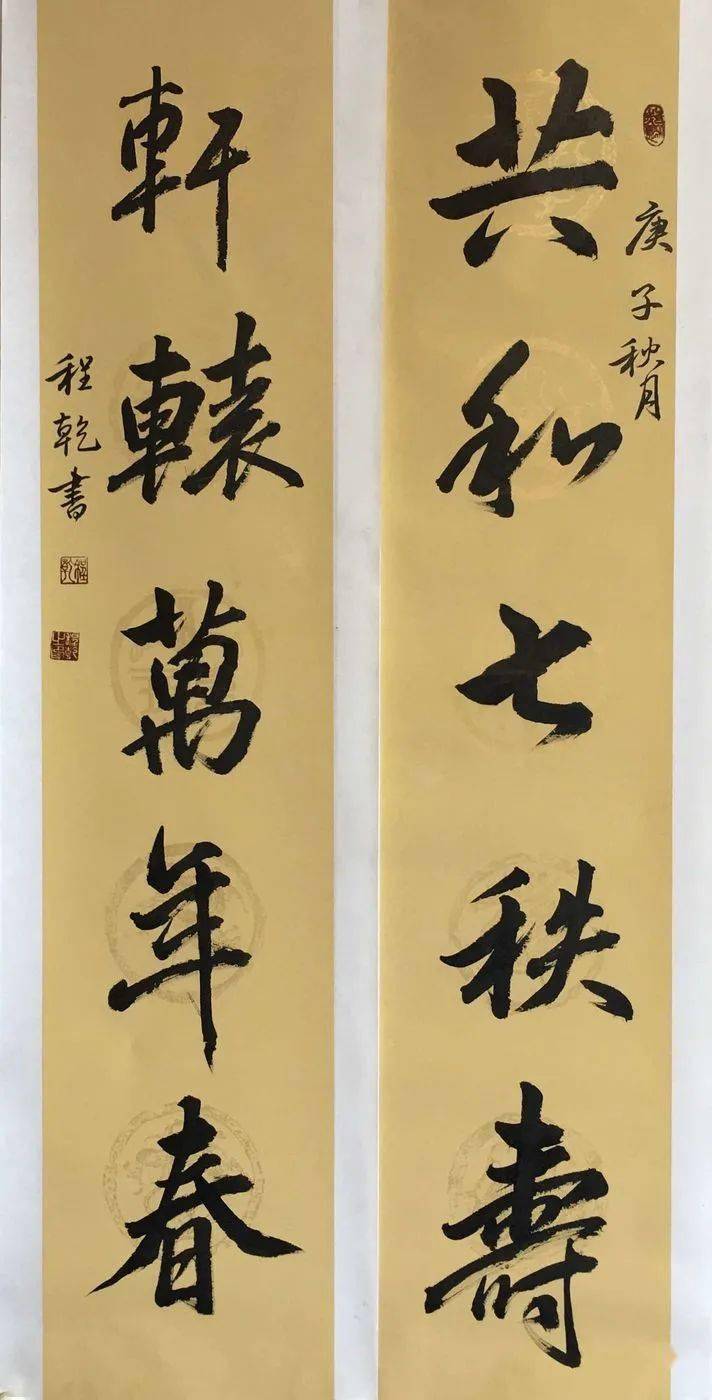 庚子秋月
共和七秩壽
軒轅萬年春
程乾書